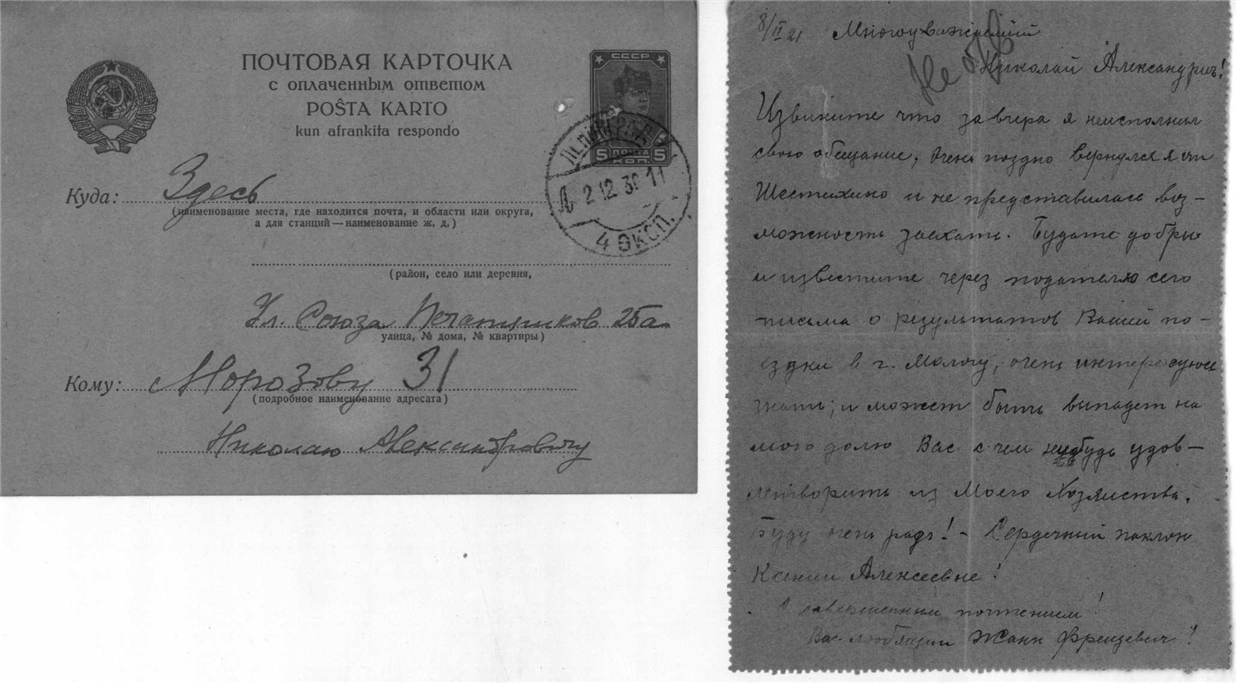 ПОЧТОВАЯ КАРТОЧКА
с оплаченным ответом
POŜTA KARTO
kun afrankita respondo
СССР
5 ПОЧТА 5
КОП.
ЛЕНИНГРАД
2.12.30.11
4 ЭКСП.
Куда: Здесь
(наименование места, где находится почта, и области или округа,
а для станций—наименование ж. д.)
(район, село или деревня,
Ул. Союза Печатников 25а
улица, № дома, № квартиры)
Кому: Морозову 31
(подробное наименование адресата)
Николаю Александровичу
8/II 21 Многоуважемий
Николай Александрич!
Извините что за вчера я неисполнил
свою обещание, очень поздно вернулся я от
Шестихино и не представилась воз-
можность заехать. Будьте добры
и известите через подателя сего
письма о результатов Вашей по-
ездки в г. Мологу, очень интересуюсь
знать; и может быть выпадет на
мою долю Вас с чем нибудь удов-
летворить из Моего Хозяйства.
Буду очень радъ! - Сердечный поклон
Ксении Алексеевне!
С совершенным почтением!
Вас любящий Жанн Францевич!